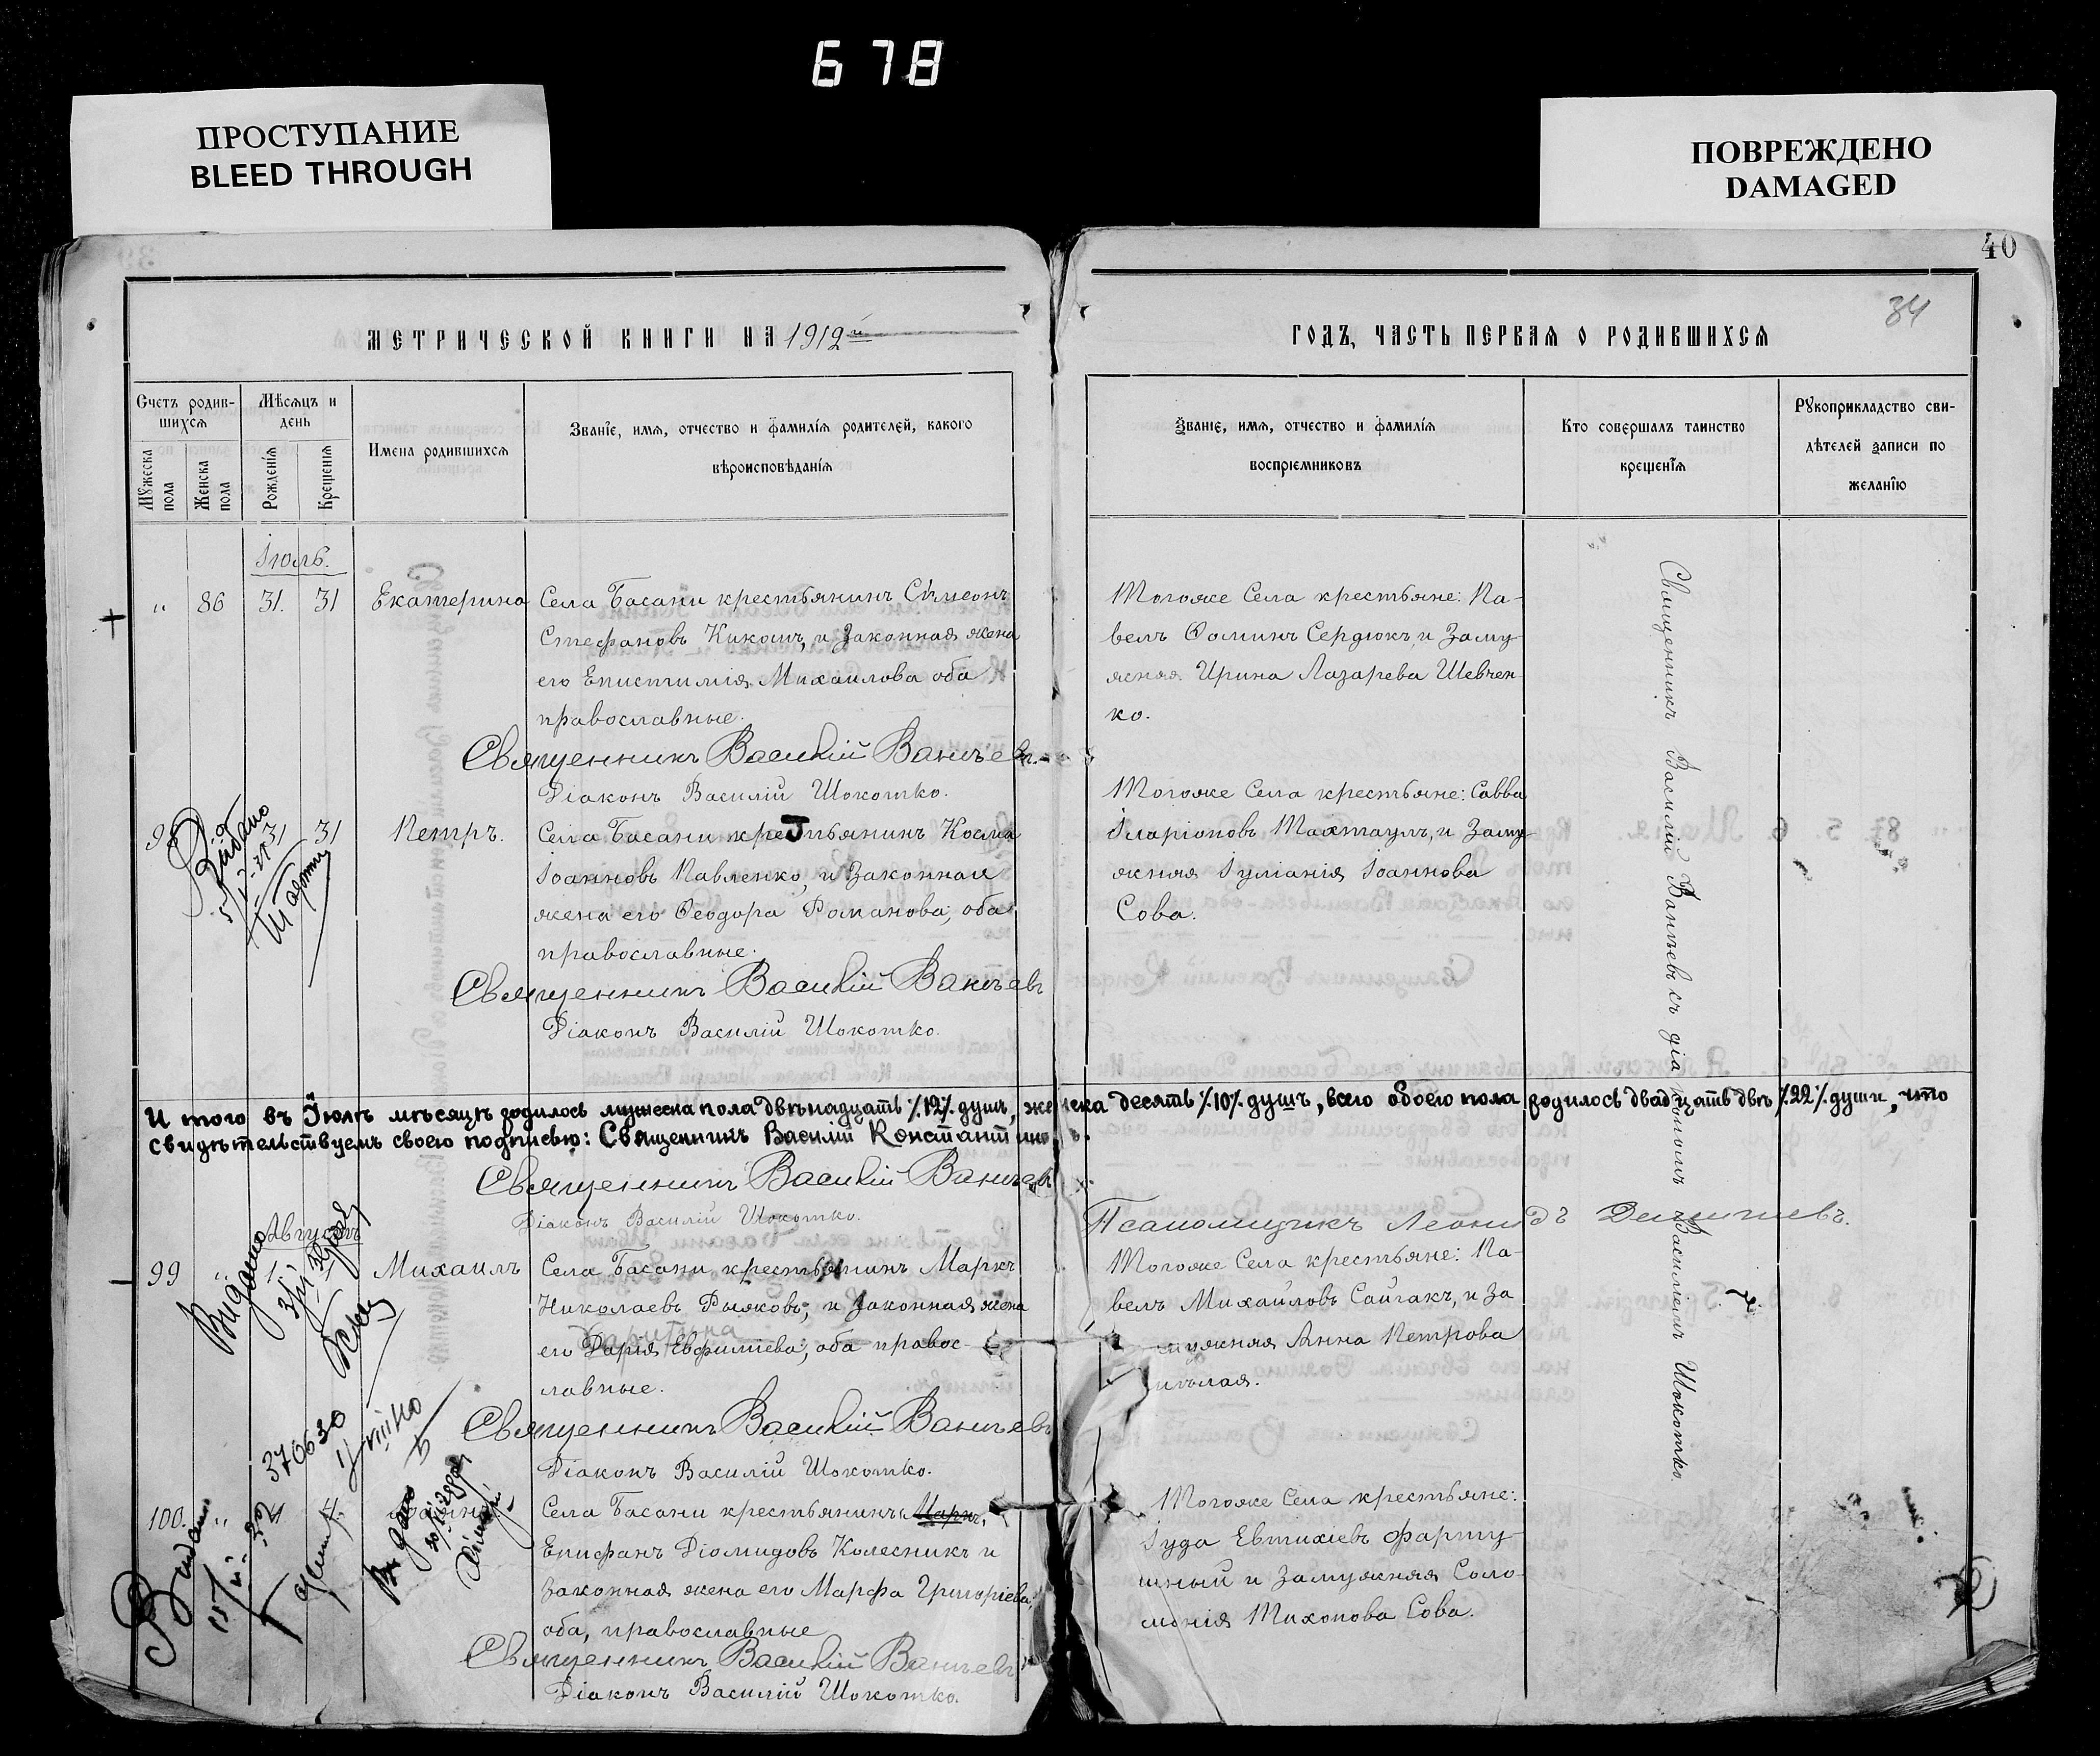 678
ПРОСТУПАНИЕ
BLEED THROUGH
ПОВРЕЖДЕНО
DAMAGED
40
34
МЕТРИЧЕСКОЙ КНИГИ НА 1912й
ГОДЪ, ЧАСТЬ ПЕРВАЯ О РОДИВШИХСЯ
Счетъ родив-
шихся
Мужеска пола
Женска пола
Мѣсяцъ и
день
Рожденія
Крещенія
Имена родившихся
Званіе, имя, отчество и фамилія родителей, какого
вѣроисповѣданія
Званіе, имя, отчество и фамилія
воспріемниковъ
Кто совершалъ таинство
крещенія
Рукоприкладство сви-
дѣтелей записи по
желанію
Іюль.
„ 86 31. 31 Екатерина
Села Басани крестьянинъ Сѵмеонъ
Стефановъ Кикошъ, и Законная жена
его Епистимія Михаилова оба
православные.
Священникъ Василій Ванчѣевъ.
Діаконъ Василій Шокотко.
Тогоже Села крестьяне: Па-
велъ Ѳоминъ Сердюкъ, и Заму-
жняя Ирина Лазарева Шевчен-
ко.
31 31 Петръ.
Села Басани крестьянинъ Косма
Іоанновъ Павленко, и Законная
жена его Ѳеодора Романова, оба
православные.
Священникъ Василій Ванчѣевъ
Діаконъ Василій Шокотко.
Тогоже Села крестьяне: Савва
Іларіоновъ Тахтаулъ, и Заму-
жняя Іуліанія Іоаннова
Сова.
Видано
И того въ Іюлѣ мѣсяцѣ родилось мужеска пола двѣнадцать %12% душъ, женска десять %10% душъ, всего обоего пола родилось двадцать двѣ %22% души, что
свидѣтельствуемъ своею подписью: Священникъ Василій Константиновъ.
Священникъ Василій Ванчѣевъ
Діаконъ Василій Шокотко.
Псаломщикъ Леонидъ
Августъ
99 „ 1. Михаилъ
Села Басани крестьянинъ Маркъ
Николаевъ Рыжовъ, и Законная жена
его Дарія Евфиміева, оба правос-
Харитина
лавные.
Священникъ Василій Ванчѣевъ
Діаконъ Василій Шокотко.
Тогоже Села крестьяне: Па-
велъ Михаиловъ Сайгакъ, и За
мужняя Анна Петрова
Видано
370630
100. „ 4 4.
Села Басани крестьянинъ Маркъ,
Епифанъ Діомидовъ Колесникъ и
Законная жена его Марфа Григоріева,
оба, православные
Священникъ Василій Ванчѣевъ
Діаконъ Василій Шокотко.
Тогоже Села крестьяне:
Іуда Евтихіевъ Фарту-
шный и Замужняя Соло-
монія Тихонова Сова.
Видано
Видано
Священникъ Василій Ванчѣевъ съ діакономъ Василіемъ Шокотко.